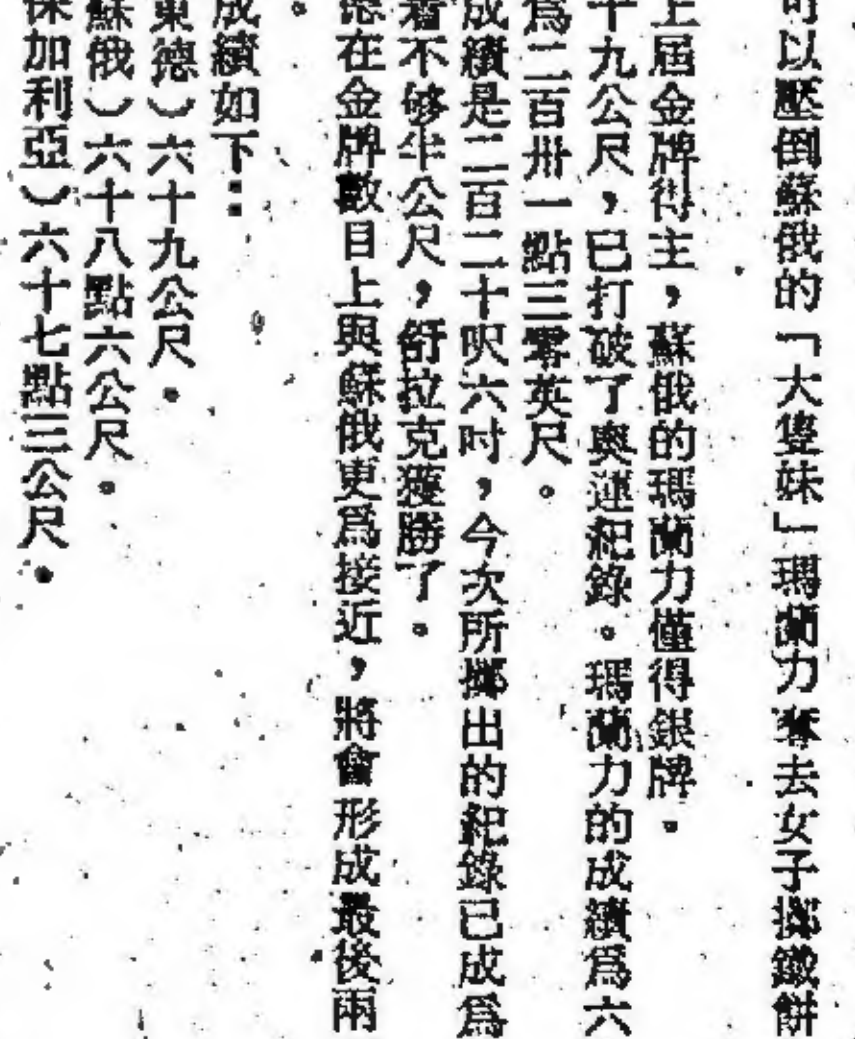 可以壓倒蘇俄的「大隻妹」瑪蘭力奪去女子擲鐵餅
上屆金牌得主，蘇俄的瑪蘭力僅得銀牌。
十九公尺，已打破了奧運紀錄。瑪蘭力的成績爲六
爲二百卅一點三零英尺。
成績是二百二十呎六吋，今次所擲出的紀錄已成爲
着不够半公尺，舒拉克獲勝了。
德在金牌數目上與蘇俄更爲接近，將會形成最後兩
。
成績如下：
東德）六十九公尺。
蘇俄）六十八點六公尺。
保加利亞）六十七點三公尺。